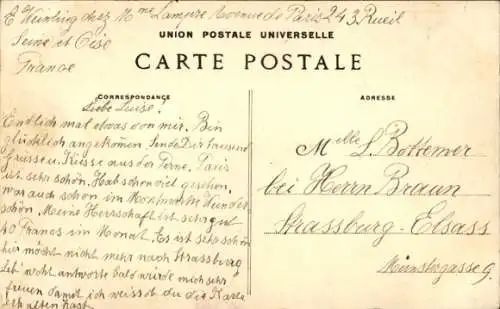 E Weinling chez Mme Lampere Avenue de Paris 243 Rueil
Seine et Oise
France
UNION POSTALE UNIVERSELLE
CARTE POSTALE
CORRESPONDANCE
ADRESSE
Liebe Luise!
Endlich mal etwas von mir. Bin
glücklich angekommen. Sende Dir tausend
Grüsse u. Küsse aus der Ferne. Paris
ist sehr schön. Hab schon viel gesehen,
war auch schon im Wunder
schön. Meine Herrschaft ist sehr gut
40 Francs im Monat. Es ist sehr schön
hier möcht nicht mehr nach Strassburg
Leb' wohl antworte bald würde mich sehr
freuen damit ich weiss ob du die Karte
erhalten hast
Melle L. Bottemer
bei Herrn Braun
Strassburg-Elsass
Münstergasse 9.